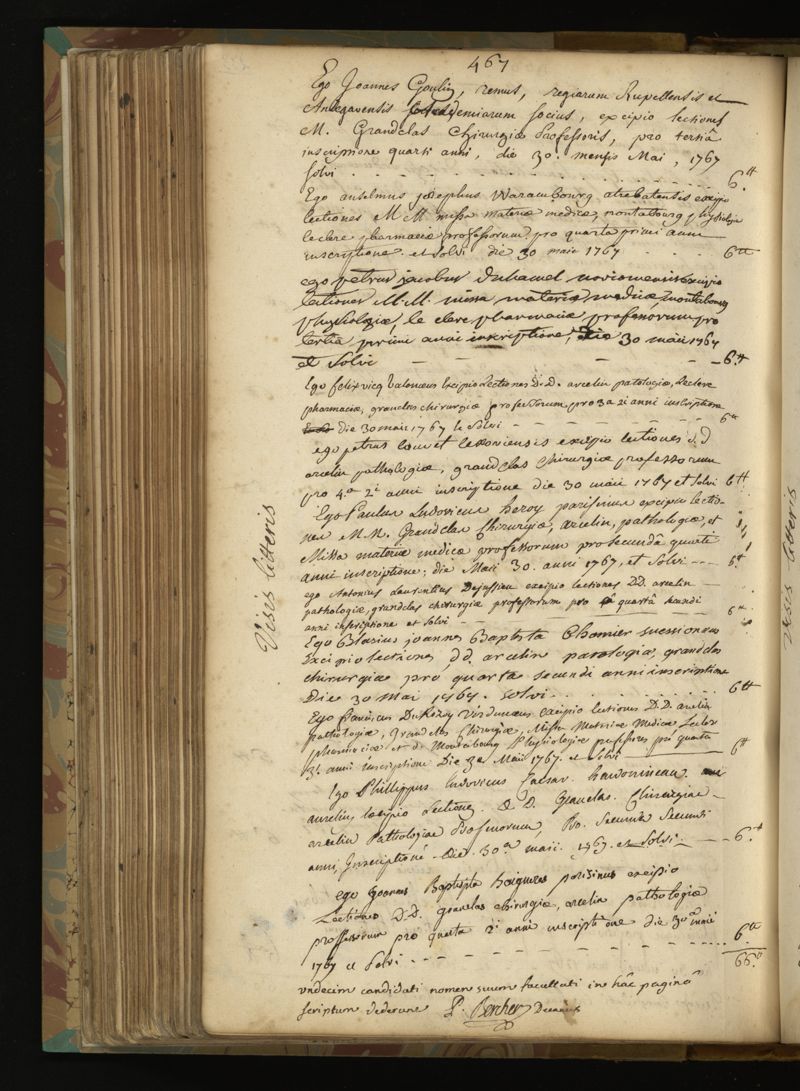 467
Ego Joannes Goulin, remus, regiarum Rupellensis et
Andegavensis academiarum socius, excipio lectiones
M. Grandclas Chirurgiæ Professoris, pro tertiâ
inscriptione quarti anni, die 30. mensis Maii, 1767
solvi . . . . . . . . . . 6.tt
Ego anselmus josephus Warambourg atrebatensis excipio
lectiones M M missa materiæ medicæ, montabourg physiologiæ
leclere pharmaciæ professorum pro quarta primi anni
inscriptione. et solvi die 30 maii 1767 . . . 6tt
ego petrus jacobus Duhamel noviomensis excipio
lectiones M.M. missa materiæ medicæ, montabourg
physiologiæ, le clere pharmaciæ professorum pro
tertia primi anni inscriptione, die 30 maii 1767
et solvi — — — — 6.tt
Ego felix vicq valoneus Excipio Lectiones D.D. arcelin patologiæ, Leclere
pharmaciæ, grandclas chirurgiæ professorum, pro 3a 2i anni inscriptione
die 30 maii 1767 et Solvi — — — — 6tt
ego petrus louvet lexoviensis excipio lectiones d.d
arcelin pathologiæ, grandclas chirurgiæ professorum
pro 4.a 2i anni inscriptione die 30 maii 1767 et solvi 6tt
Ego Paulus Ludovicus heroy parisinus excipio lectio-
nes M.M. Grandclas Chirurgiæ, arcelin, pathologiæ, et
Missa materiæ medicæ professorum pro secundâ quarti
anni inscriptione; die Maii 30. anni 1767, et Solvi --- 6.tt
ego Antonius Laurentius Dejussieu excipio lectiones DD. arcelin
pathologiæ, grandclas chirurgiæ professorum pro quartâ secundi
anni inscriptione et solvi — — — — 6tt
Ego Blasius joannes Baptista Chomier suessionæus
Excipio lectiones, DD. arcelin patologiæ, grandclas
chirurgiæ pro quarta secundi anni inscriptione
Die 30 Mai 1767. Solvi. . . . . . . 6tt
Ego franciscus Virdunæus excipio lectiones D.D. arcelin
pathologiæ, Grandclas Chirurgiæ, Missa Materiæ Medicæ Lecler
pharmaciæ et de Montabourg Physiologiæ professorum pro quarta
3i. anni inscriptione Die 30 Maii 1767. et Solvi — 6tt
Ego Phillippus Ludovicus Caesar
aurelius excipio Lectiones. D. D. Grancla. Chirurgiæ -
arcelin Pathologiae Professorum, Pro. Secunda Secundi
anni, Inscriptione - Die. 30a maii. 1767. et Solvi. - - 6.tt
ego joannes Baptista parisinus excipio
Lectiones D.D. granclas chirurgiæ, arcelin pathologiæ
professorum pro quarta 2i anni inscriptione die 30a maii
1767 et Solvi - - - - 6.tt
66.tt
undecim candidati nomen suum facultati in hâc paginâ
scriptum dederunt P. Bercher Decanus
Visis litteris